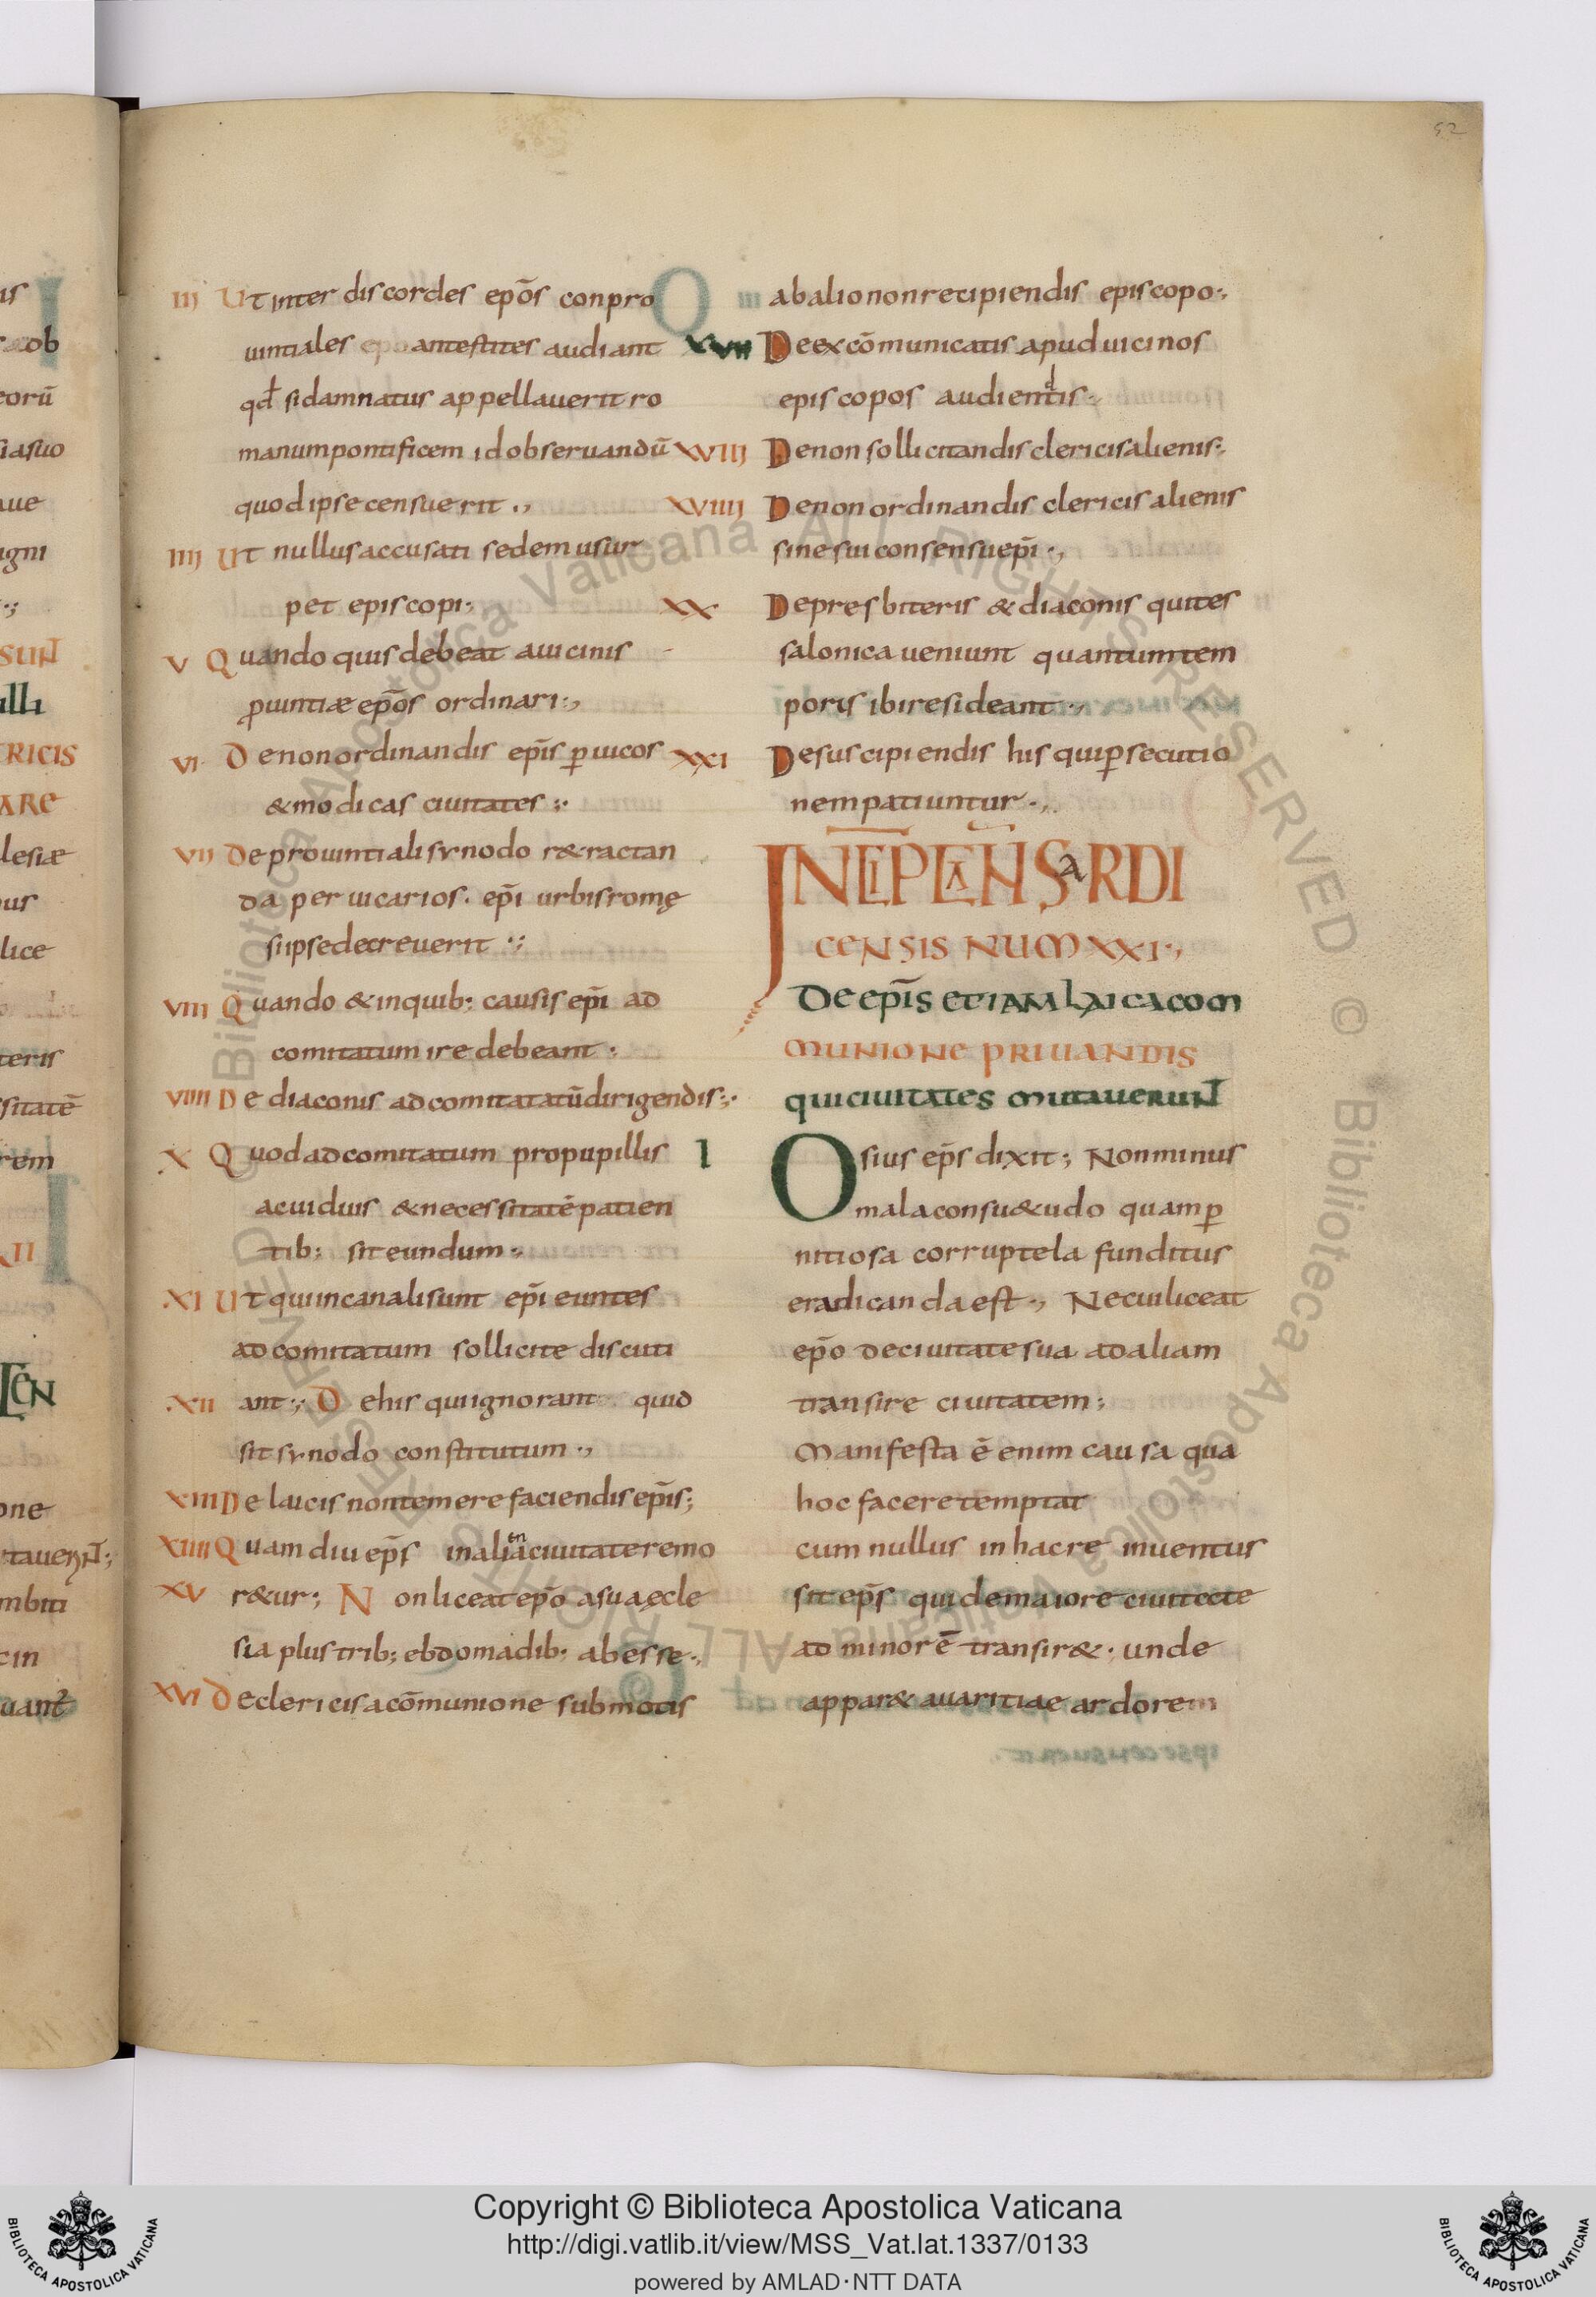 52
III Ut inter discordes ep̄os conpro
uintiales antestites audiant
qđ si damnatus appellauerit ro
manum pontificem id obseruandū
quod ipse censuerit.,
IIII Ut nullus accusati sedem usur
pet episcopi.,
V Quando quis debeat a uicinis
ꝓuintiæ ep̄os ordinari.,
VI De non ordinandis ep̄is ꝑ uicos
& modicas ciuitates :.
VII De prouintiali synodo r&ractan
da per uicarios. ep̄i urbis romę
si ipse decreuerit .:
VIII Quando & in quib: causis ep̄i ad
comitatum ire debeant :
VIIII De diaconis ad comitatatū dirigendis:.
X Quod ad comitatum pro pupillis
ac uiduis & necessitatē patien
tib; sit eundum.,
XI Ut qui in canali sunt ep̄i euntes
ad comitatum sollicite discuti
XII ant:; De his qui ignorant quid
sit synodo constitutum .,
XIII De laicis non temere faciendis ep̄is;
XIIII Quam diu ep̄s in aliena ciuitate remo
XV r&ur; Non liceat ep̄o a sua ecle
sia plus trib; ebdomadib. abesse.,
XVI De clericis a cōmunione submotis
ab alio non recipiendis episcopo.,
XVII De excōmunicatis apud uicinos
episcopos audiendis.
XVIII De non sollicitandis clericis alienis:.
XVIIII De non ordinandis clericis alienis
sine sui consensu ep̄i .,
XX De presbiteris & diaconis qui tes
salonica ueniunt quantum tem
poris ibi resideant .,
XXI De suscipiendis his qui ꝑsecutio
nem patiuntur .,
INCIP CAN SARDI
CENSIS NUM XXI.,
De ep̄is etiam laica com
munione priuandis
qui ciuitates mutauerunt
I Osius ep̄s dixit; Non minus
mala consu&udo quam ꝑ
nitiosa corruptela funditus
eradicanda est., Nec cui liceat
ep̄o de ciuitate sua ad aliam
transire ciuitatem;
Manifesta ē enim causa qua
hoc facere temptat
cum nullus in hac re inuentus
sit ep̄s qui de maiore ciuitate
ad minorē transir&. unde
appar& auaritiae ardorem
Copyright © Biblioteca Apostolica Vaticana
http://digi.vatlib.it/view/MSS_Vat.lat.1337/0133
powered by AMLAD·NTT DATA
BIBLIOTECA APOSTOLICA VATICANA
BIBLIOTECA APOSTOLICA VATICANA